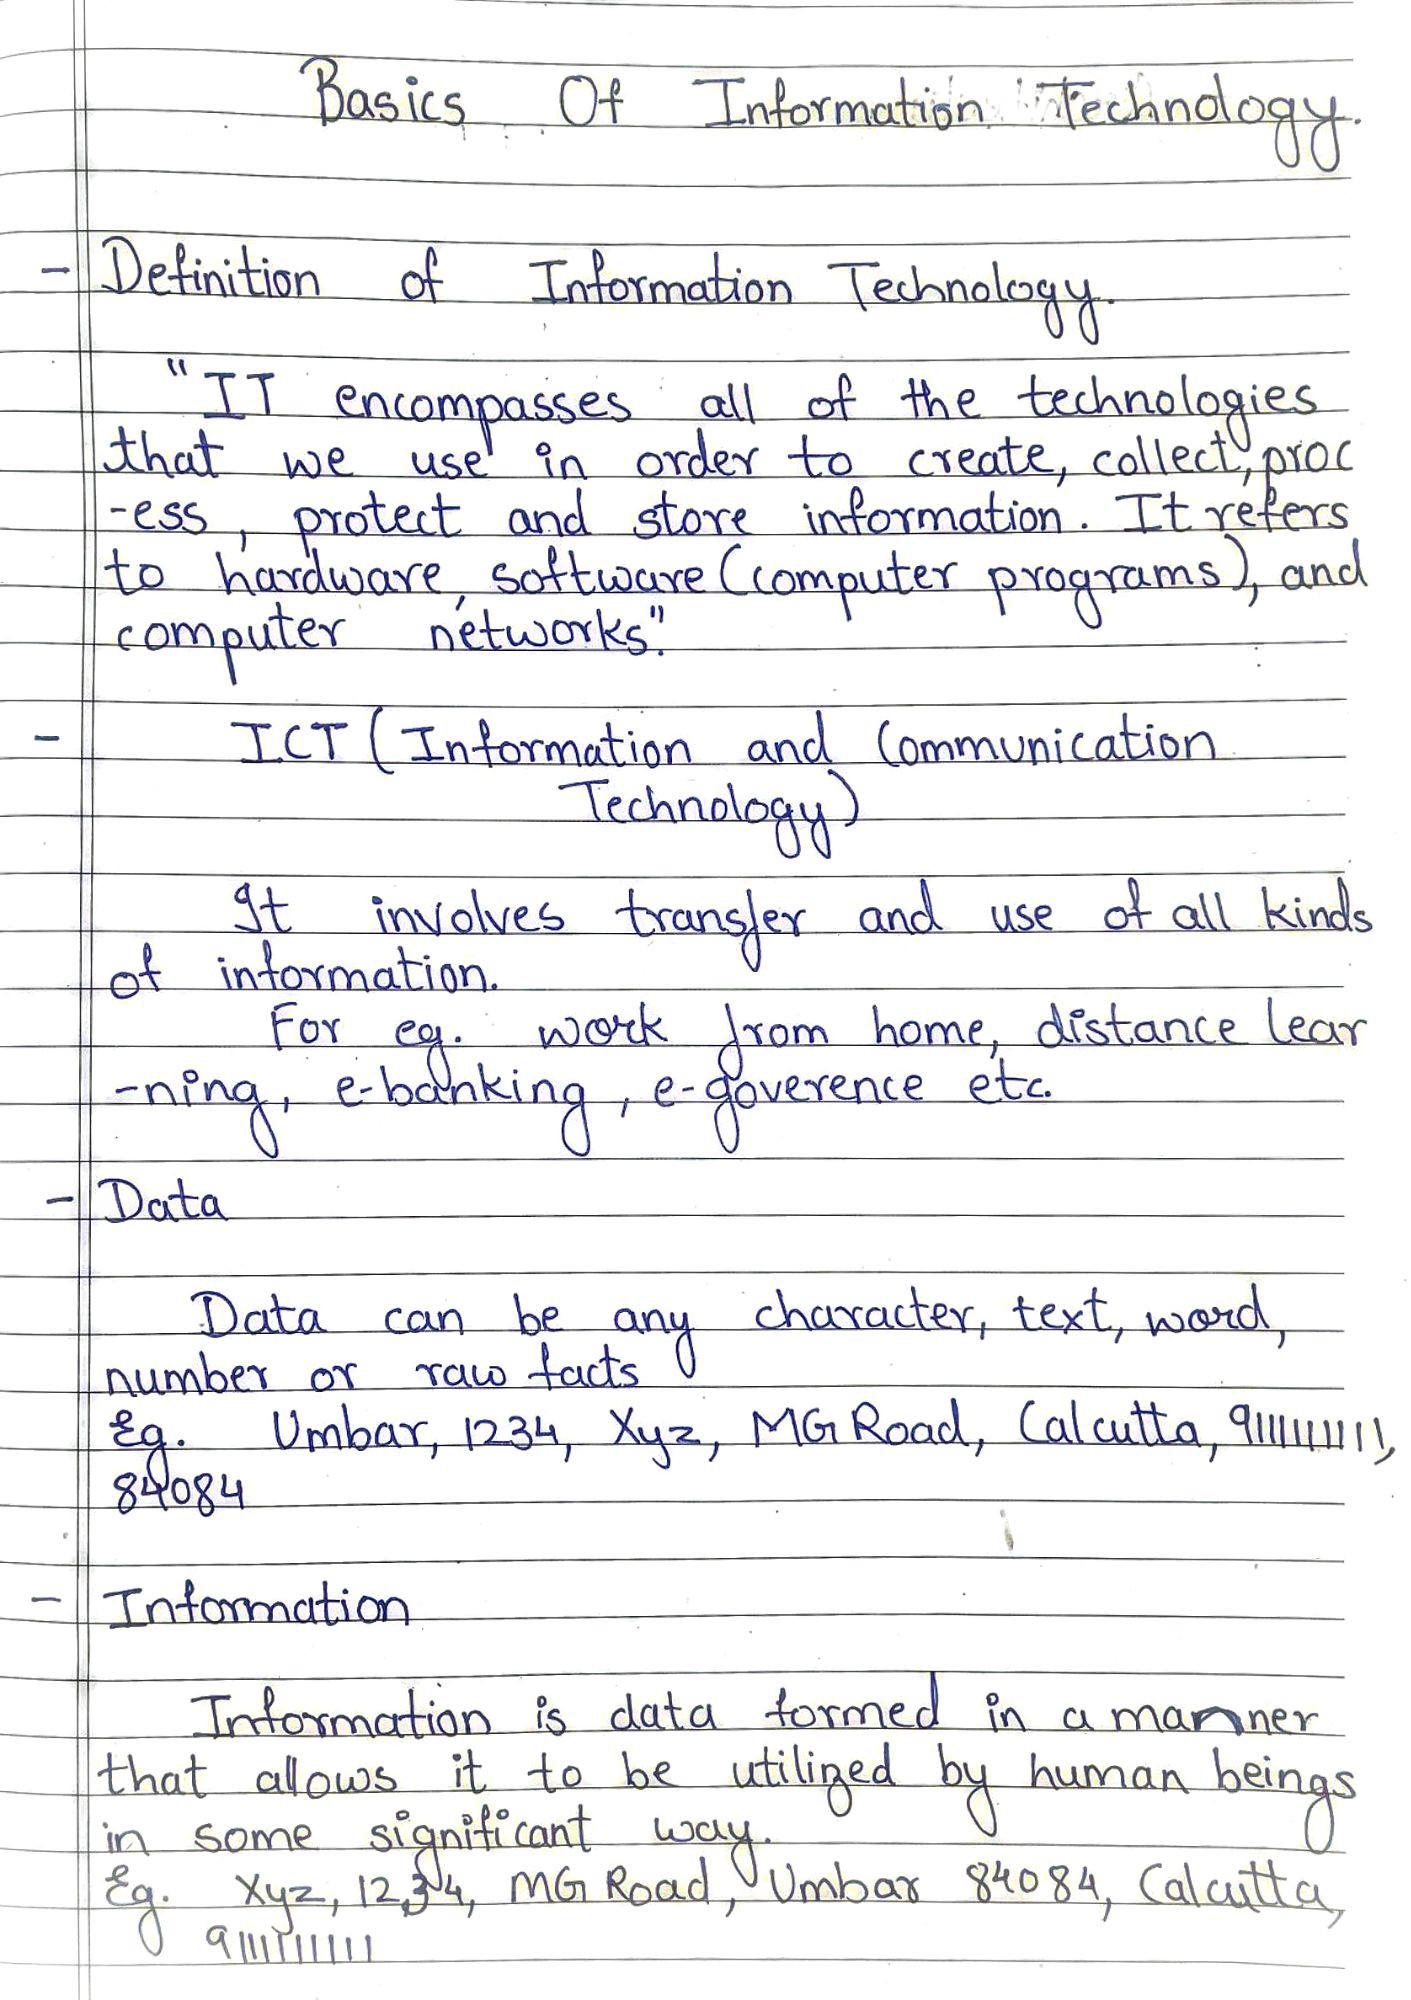 Basics Of Information Technology.
- Definition of Information Technology.
"IT encompasses all of the technologies
that we use in order to create, collect, proc
-ess, protect and store information. It refers
to hardware, software (computer programs), and
computer networks".
- ICT (Information and Communication
Technology)
It involves transfer and use of all kinds
of information.
For eg. work from home, distance lear
-ning, e-banking, e-goverence etc.
- Data
Data can be any character, text, word,
number or raw facts
Eg. Umbar, 1234, Xyz, MG Road, Calcutta, 9111111111,
84084
- Information
Information is data formed in a manner
that allows it to be utilized by human beings
in some significant way.
Eg. Xyz, 1234, MG Road, Umbar 84084, Calcutta,
9111111111